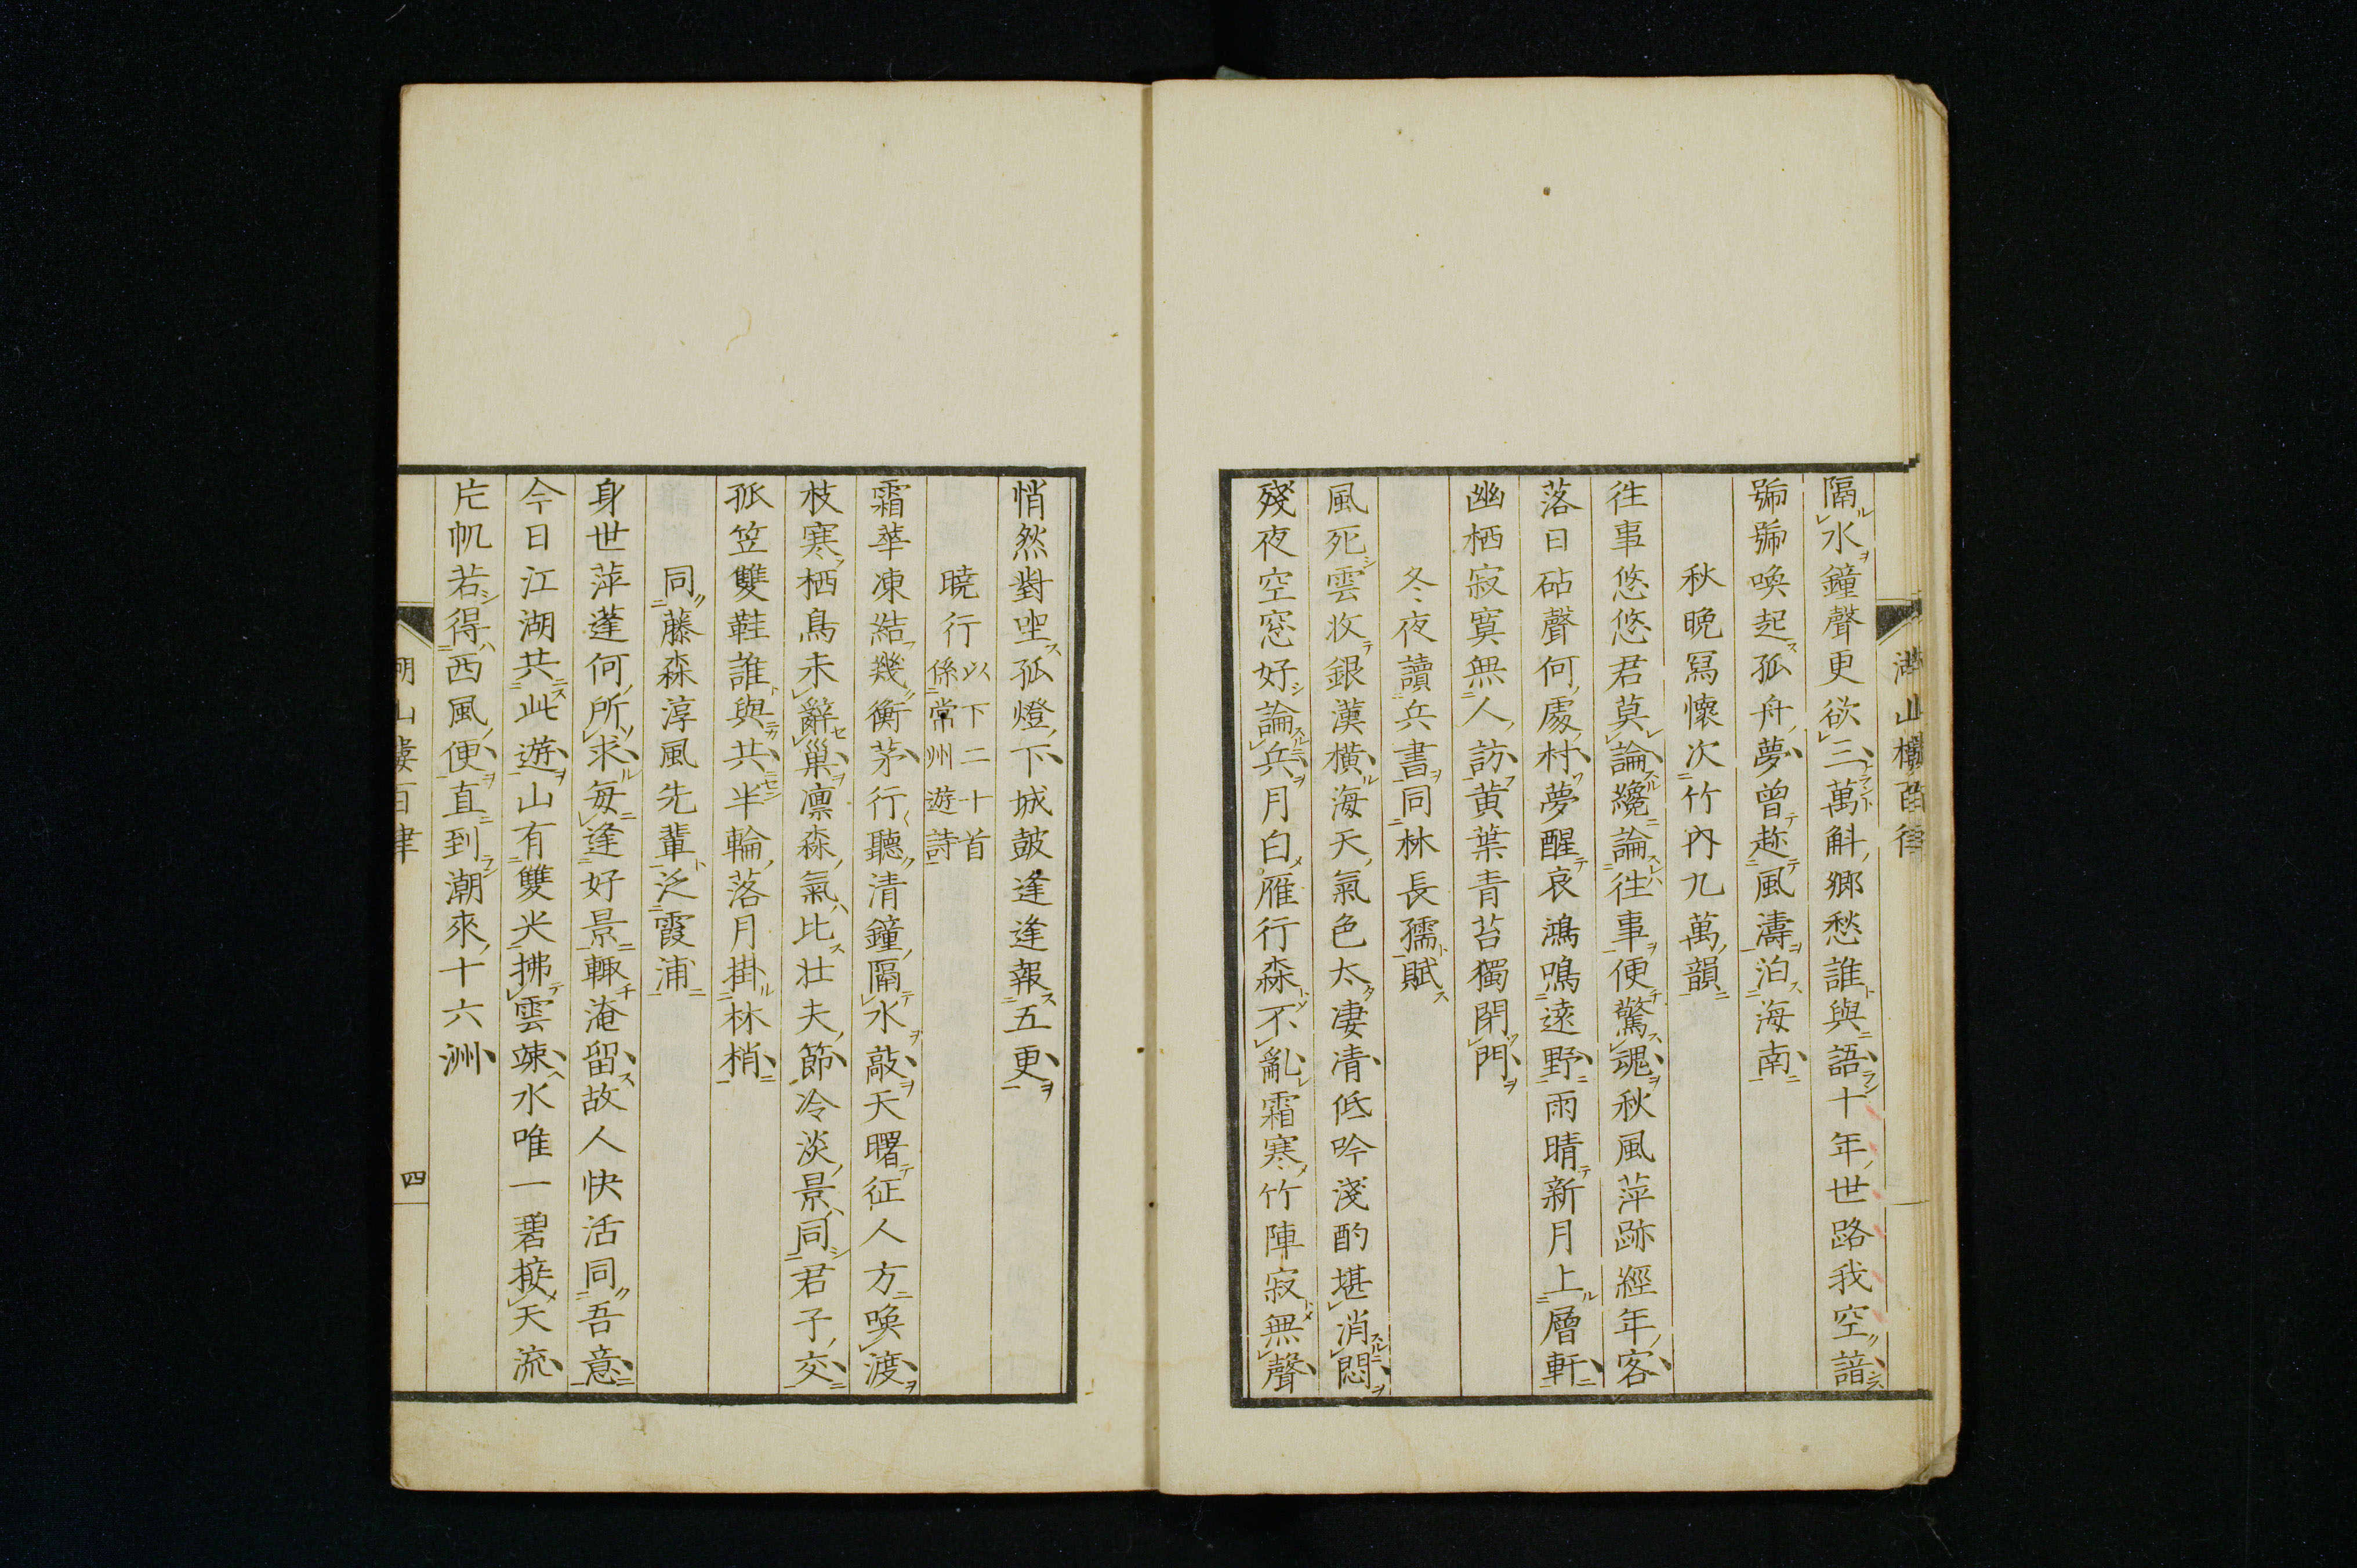 隔水鐘聲更欲三萬斛郷愁誰與語十年世路我空諳
號號喚起孤舟夢曾趂風濤泊海南
秋晩冩懷次竹內九萬韻
徃事悠悠君莫論纔論徃事便驚魂秋風萍跡經年客
落日砧聲何處村夢醒哀鴻鳴遠野雨晴新月上層軒
幽栖寂寞無人訪黄葉青苔獨閉門
冬夜讀兵書同林長孺賦
風死雲收銀漢橫海天氣色太凄清低吟淺酌堪消悶
殘夜空窓好論兵月白雁行森不亂霜寒竹陣寂無聲
悄然對坐孤燈下城鼓逢逢報五更
曉行
以下二十首
係常州遊詩
霜華凍結幾衡茅行聽清鐘隔水敲天曙征人方喚渡
枝寒栖鳥未辭巢凛森氣比壮夫節冷淡景同君子交
孤笠雙鞋誰與共半輪落月掛林梢
同藤森淳風先輩泛霞浦
身世萍蓬何所求每逢好景輙淹留故人快活同吾意
今日江湖共此遊山有雙尖拂雲竦水唯一碧接天流
片帆若得西風便直到潮來十六洲
四